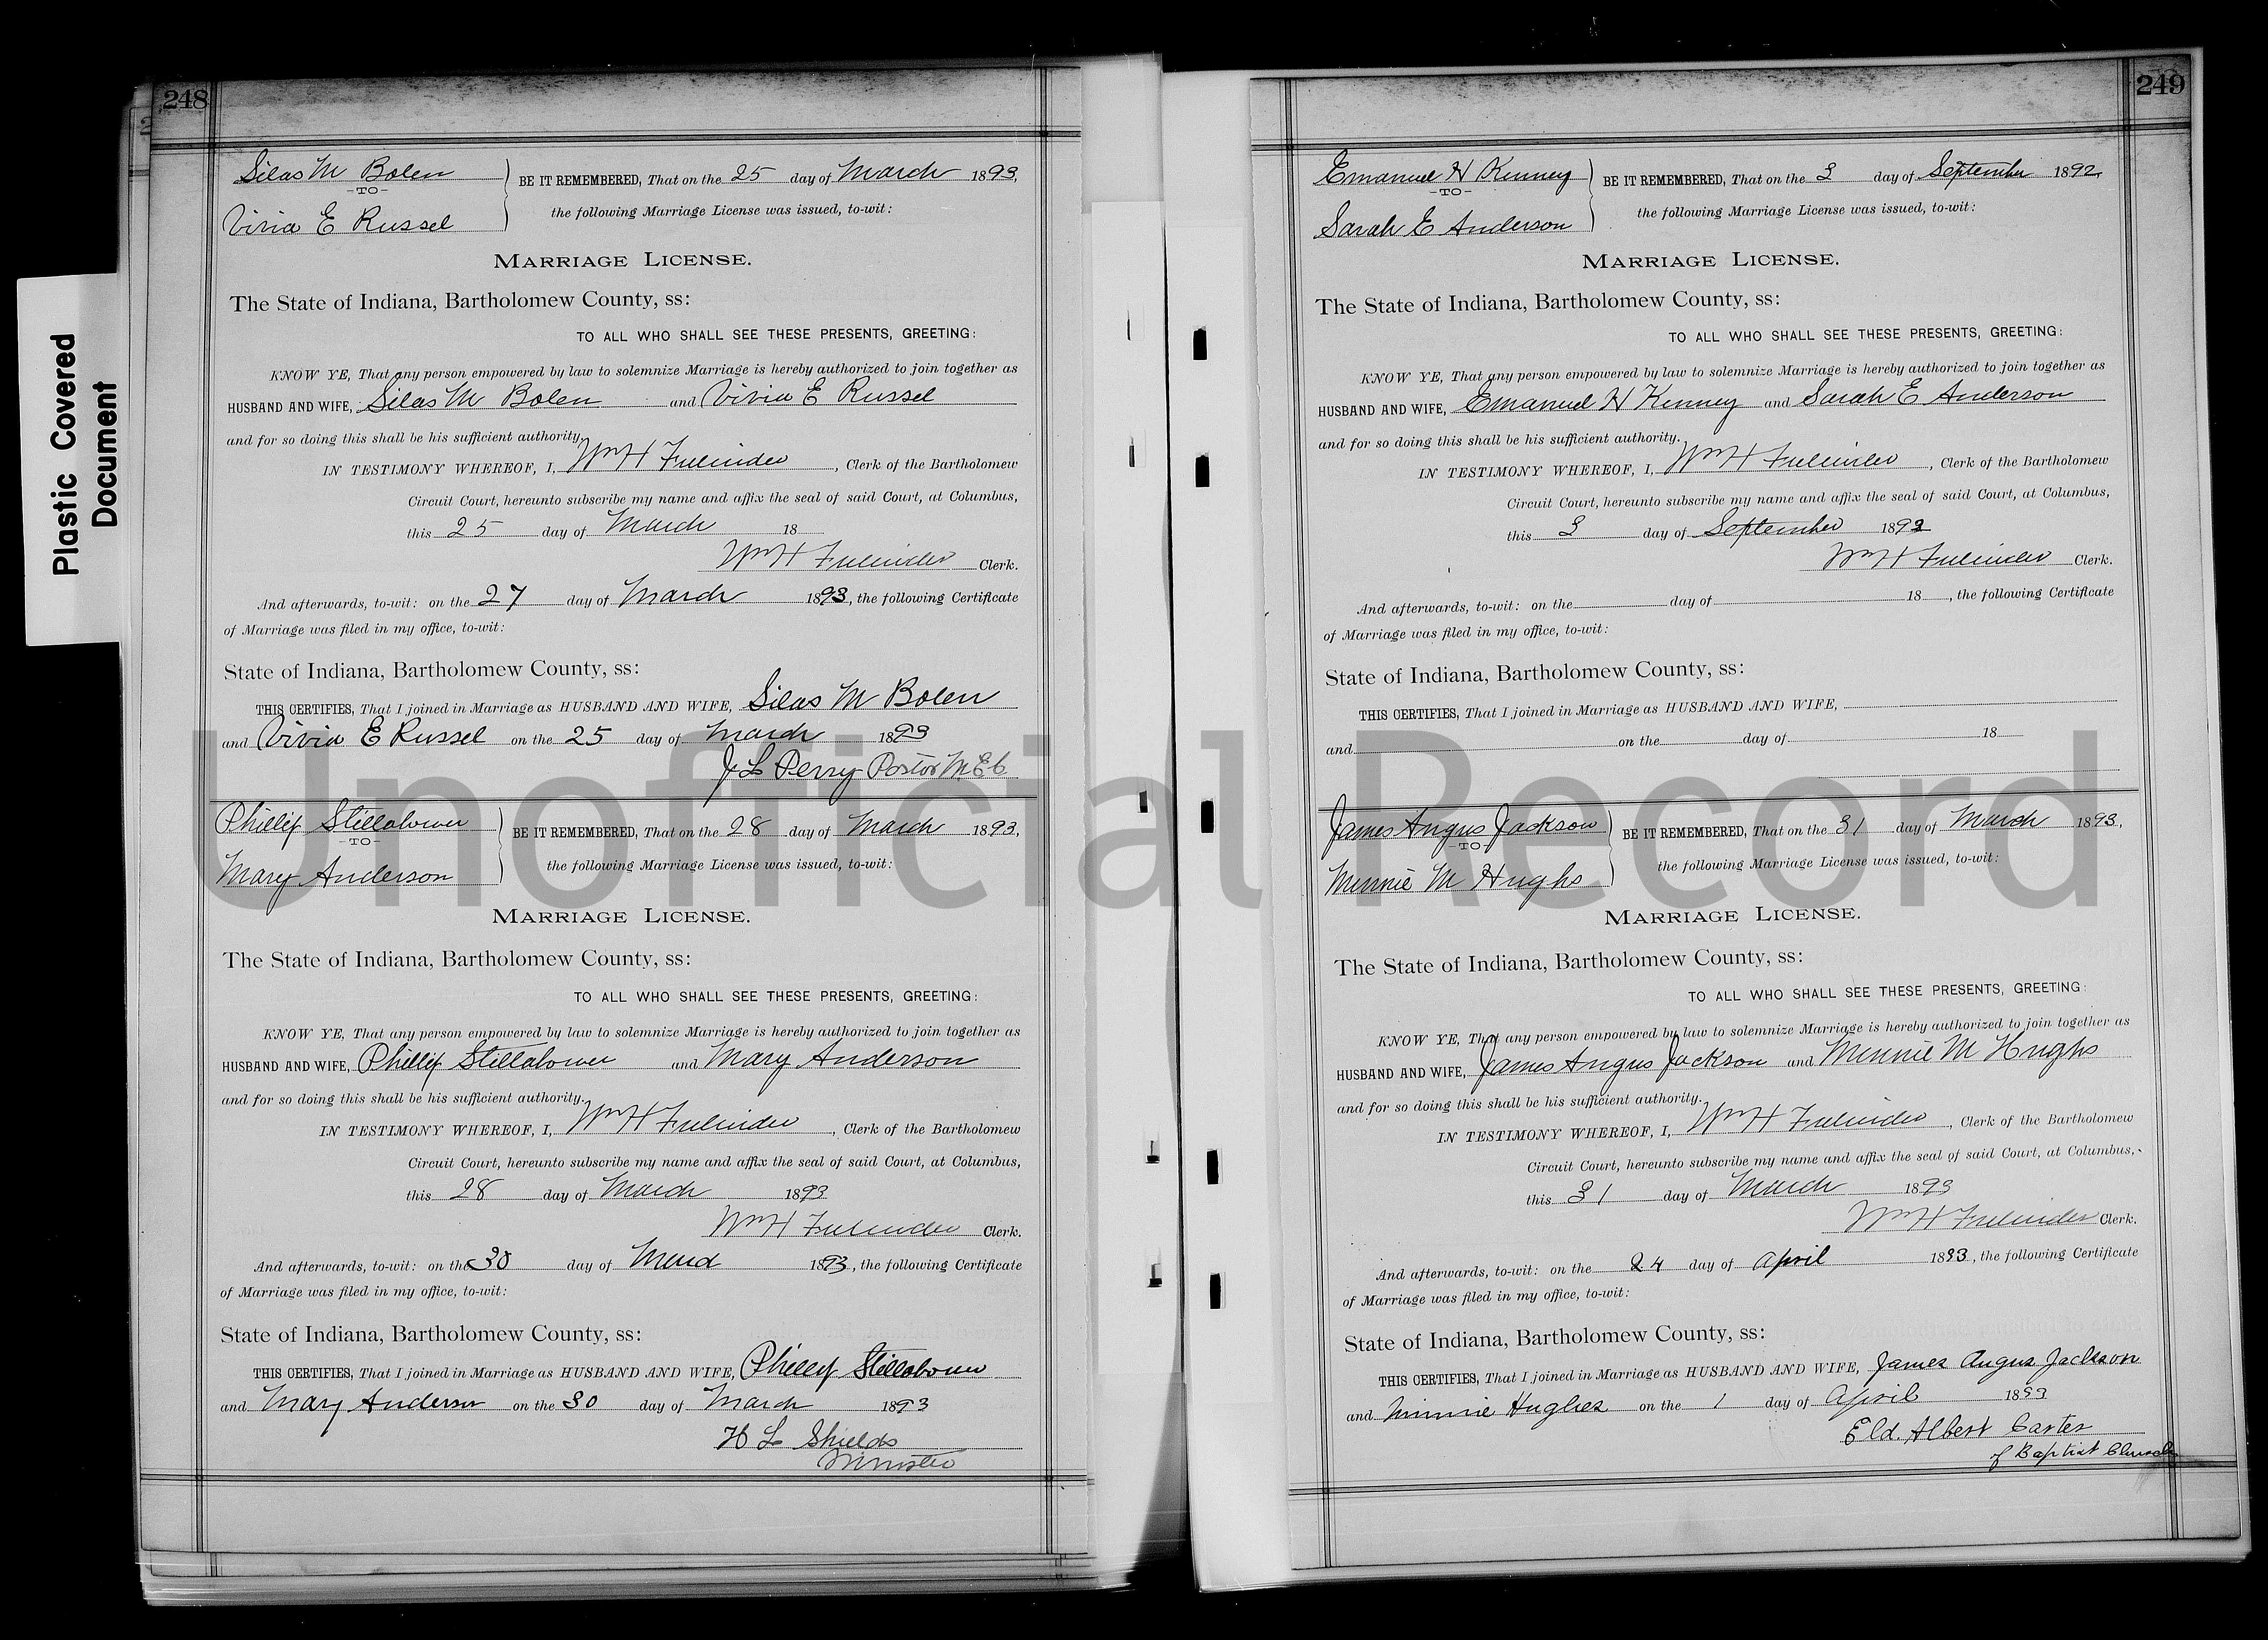 Plastic Covered
Document
248
Silas M Bolen
-TO-
Vivia E Russel
BE IT REMEMBERED, That on the 25 day of March 1893,
the following Marriage License was issued, to-wit:
MARRIAGE LICENSE.
The State of Indiana, Bartholomew County, ss:
TO ALL WHO SHALL SEE THESE PRESENTS, GREETING:
KNOW YE, That any person empowered by law to solemnize Marriage is hereby authorized to join together as
HUSBAND AND WIFE, Silas M Bolen and Vivia E Russel
and for so doing this shall be his sufficient authority.
IN TESTIMONY WHEREOF, I, Wm H , Clerk of the Bartholomew
Circuit Court, hereunto subscribe my name and affix the seal of said Court, at Columbus,
this 25 day of March 18
Wm H Clerk.
And afterwards, to-wit: on the 27 day of March 1893, the following Certificate
of Marriage was filed in my office, to-wit:
State of Indiana, Bartholomew County, ss:
THIS CERTIFIES, That I joined in Marriage as HUSBAND AND WIFE, Silas M Bolen
and Vivia E Russel on the 25 day of March 1893
J L Perry Pastor M E C
Phillip Stillabower
-TO-
Mary Anderson
BE IT REMEMBERED, That on the 28 day of March 1893,
the following Marriage License was issued, to-wit:
MARRIAGE LICENSE.
The State of Indiana, Bartholomew County, ss:
TO ALL WHO SHALL SEE THESE PRESENTS, GREETING:
KNOW YE, That any person empowered by law to solemnize Marriage is hereby authorized to join together as
HUSBAND AND WIFE, Phillip Stillabower and Mary Anderson
and for so doing this shall be his sufficient authority.
IN TESTIMONY WHEREOF, I, Wm H , Clerk of the Bartholomew
Circuit Court, hereunto subscribe my name and affix the seal of said Court, at Columbus,
this 28 day of March 1893
Wm H Clerk.
And afterwards, to-wit: on the 30 day of 1893, the following Certificate
of Marriage was filed in my office, to-wit:
State of Indiana, Bartholomew County, ss:
THIS CERTIFIES, That I joined in Marriage as HUSBAND AND WIFE, Phillip Stillabower
and Mary Anderson on the 30 day of March 1893
H L Shields
Minister
249
Emanuel H Kenney
-TO-
Sarah E Anderson
BE IT REMEMBERED, That on the 3 day of September 1892,
the following Marriage License was issued, to-wit:
MARRIAGE LICENSE.
The State of Indiana, Bartholomew County, ss:
TO ALL WHO SHALL SEE THESE PRESENTS, GREETING:
KNOW YE, That any person empowered by law to solemnize Marriage is hereby authorized to join together as
HUSBAND AND WIFE, Emanuel H Kenney and Sarah E Anderson
and for so doing this shall be his sufficient authority.
IN TESTIMONY WHEREOF, I, Wm H , Clerk of the Bartholomew
Circuit Court, hereunto subscribe my name and affix the seal of said Court, at Columbus,
this 3 day of September 1892
Wm H Clerk.
And afterwards, to-wit: on the day of 18 , the following Certificate
of Marriage was filed in my office, to-wit:
State of Indiana, Bartholomew County, ss:
THIS CERTIFIES, That I joined in Marriage as HUSBAND AND WIFE,
and on the day of 18
James Angus Jackson
-TO-
Minnie M Hughs
BE IT REMEMBERED, That on the 31 day of March 1893,
the following Marriage License was issued, to-wit:
MARRIAGE LICENSE.
The State of Indiana, Bartholomew County, ss:
TO ALL WHO SHALL SEE THESE PRESENTS, GREETING:
KNOW YE, That any person empowered by law to solemnize Marriage is hereby authorized to join together as
HUSBAND AND WIFE, James Angus Jackson and Minnie M Hughs
and for so doing this shall be his sufficient authority.
IN TESTIMONY WHEREOF, I, Wm H , Clerk of the Bartholomew
Circuit Court, hereunto subscribe my name and affix the seal of said Court, at Columbus,
this 31 day of March 1893
Wm H Clerk.
And afterwards, to-wit: on the 24 day of April 1893, the following Certificate
of Marriage was filed in my office, to-wit:
State of Indiana, Bartholomew County, ss:
THIS CERTIFIES, That I joined in Marriage as HUSBAND AND WIFE, James Angus Jackson
and Minnie Hughes on the 1 day of April 1893
Eld. Albert Carter
of Baptist Church
Unofficial Record